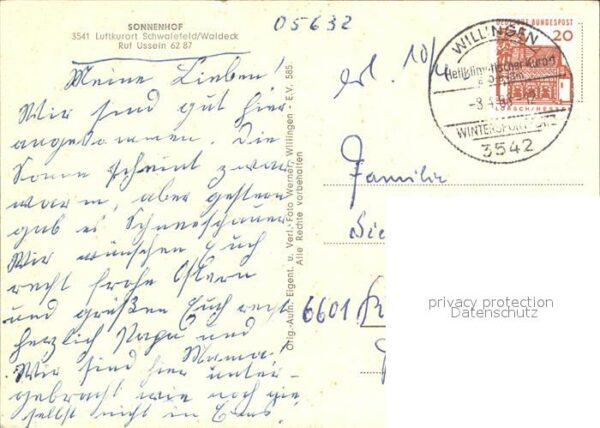 SONNENHOF
3541 Luftkurort Schwalefeld/Waldeck
Ruf Usseln 62 87
05632
Meine Lieben!
Wir sind gut hier
angekommen. Die
Sonne scheint zwar
warm, aber gestern
gab es Schneeschauer.
Wir wünschen Euch
recht frohe Ostern
und grüßen Euch recht
herzlich Papa und
Mama.
Wir sind hier unter-
gebracht wie noch nie
selbst nicht in
Orig.-Aufn. Eigent. u. Verl. Foto Werner, Willingen - E.V. 585
Alle Rechte vorbehalten
erh. 10/4
DEUTSCHE BUNDESPOST
20
LORSCH/HESSEN
WILLINGEN
Heilklimatischer Kurort
WINTERSPORTPLATZ
3542
Familie
6601
privacy protection
Datenschutz